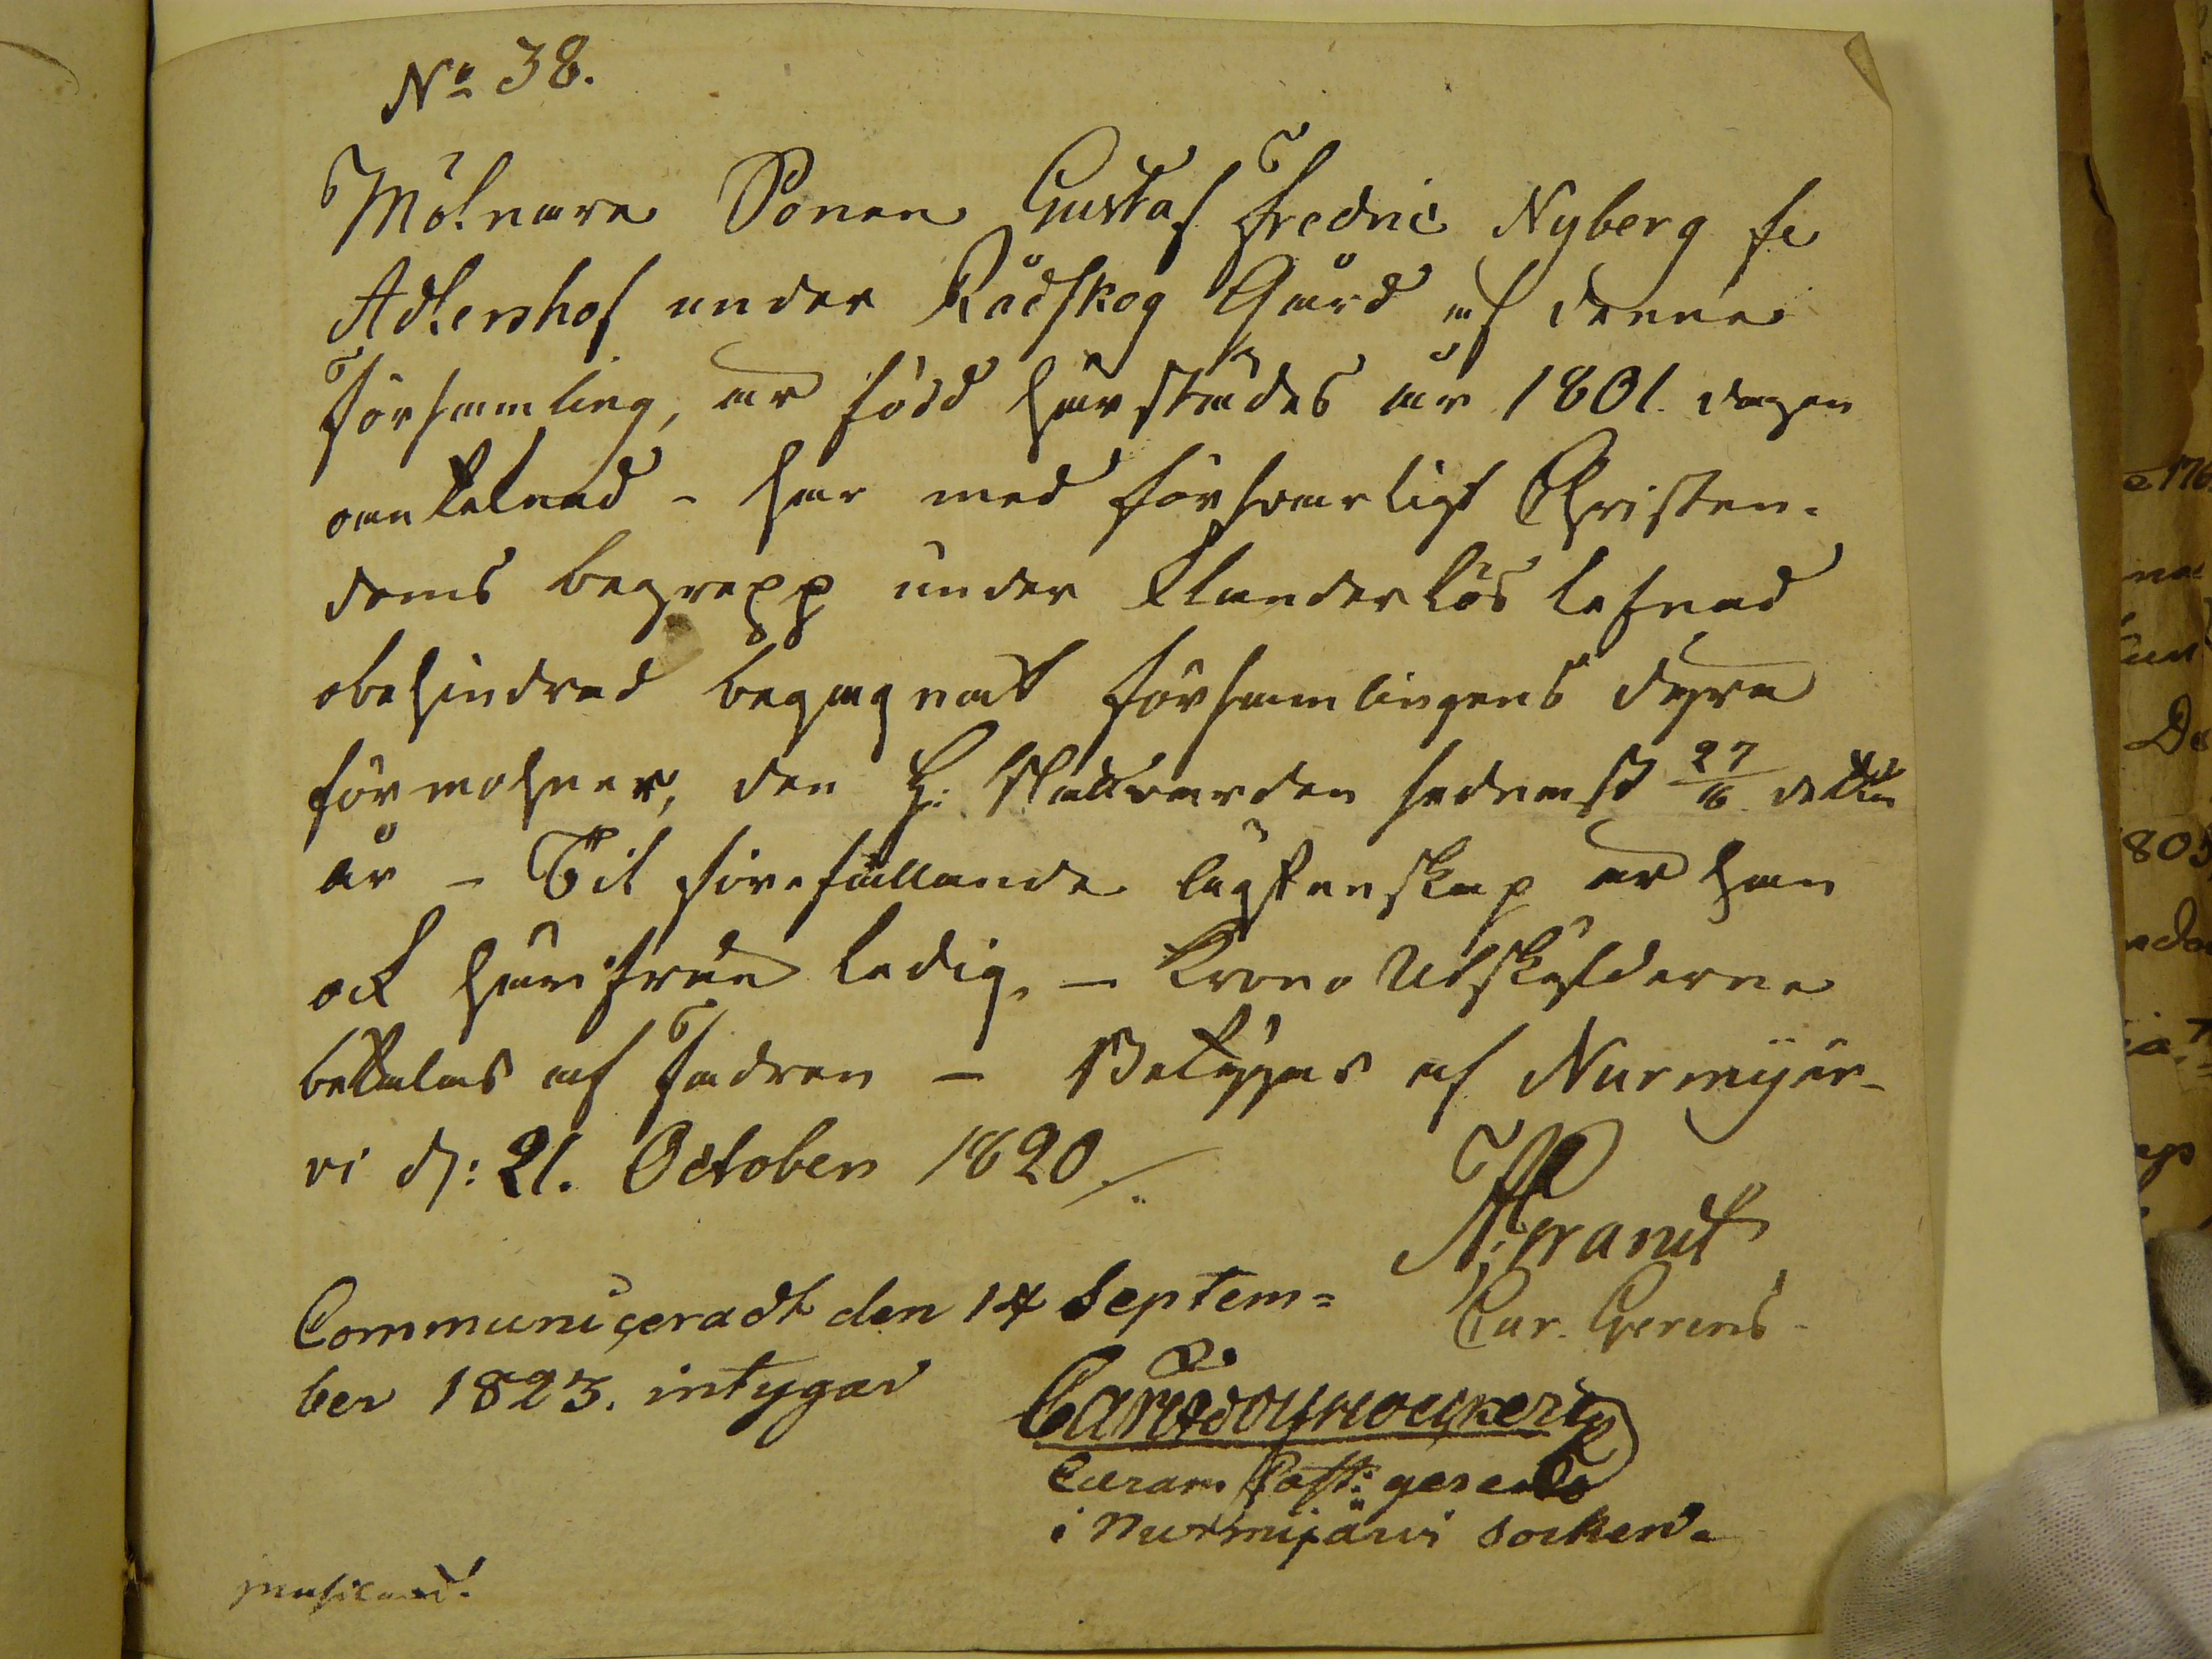 No 38.
Mölnare Sonen Gustaf Fredric Nyberg fr
Adlershof under Rådskog Gård af denne
församling, är född härstädes år 1801. dagen
oanteknad - har med försvarligt Christen-
doms begrepp under klanderlös lefnad
obehindrad begagnat församlingens dyra
förmohner, den H: Nattvarden sednast 27/6 detta
år - Til förefallande lägtenskap är han
ock härifrån ledig. - Krono Utskylderne
betalas af fadren - Betygar af Nurmijer-
vi d: 21. October 1820
Cur. Gerens
Communiceradt den 14 Septem=
ber 1823. intygar
Curam Past: gerens
i Nurmijärvi Socken